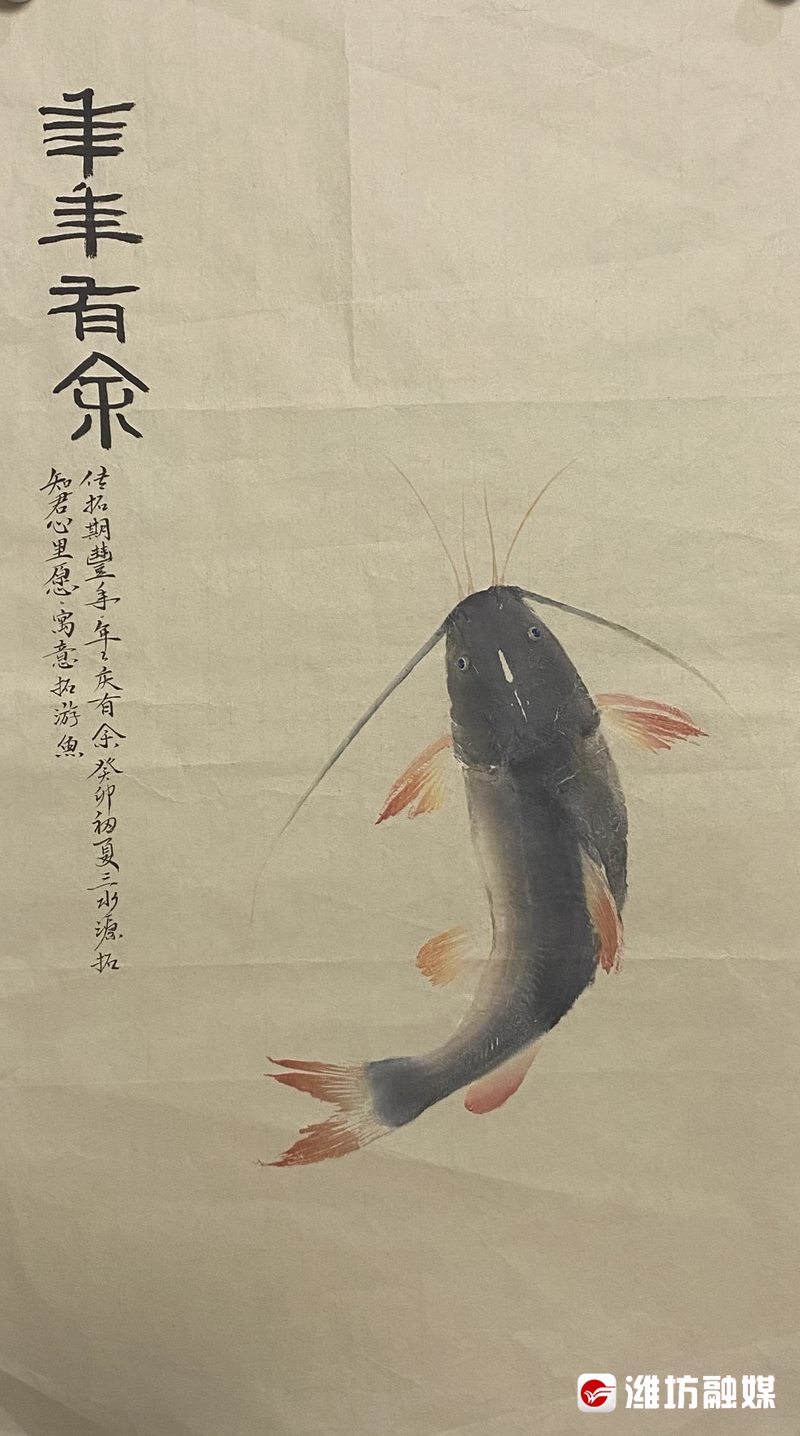 年年有余
知君心里愿寓意拓游魚
传拓期豐年年々庆有余癸卯初夏三水源拓
潍坊融媒